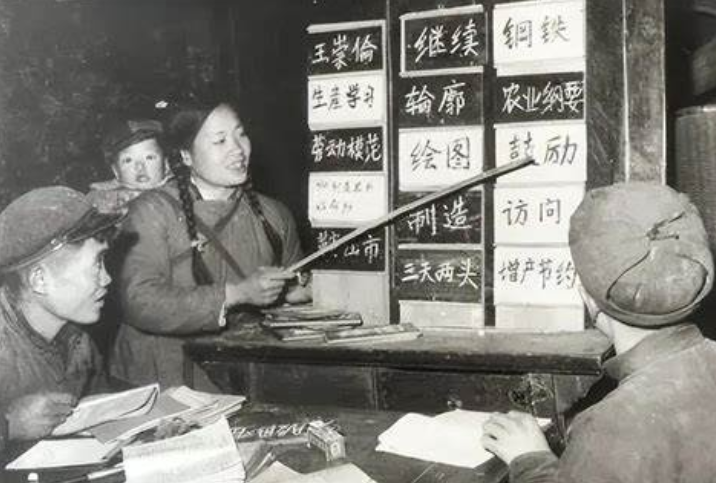 王崇倫
生産学习
劳动模范
鞍山市
继续
轮廓
绘图
制造
三天两头
钢铁
农业纲要
鼓励
访问
增产节约